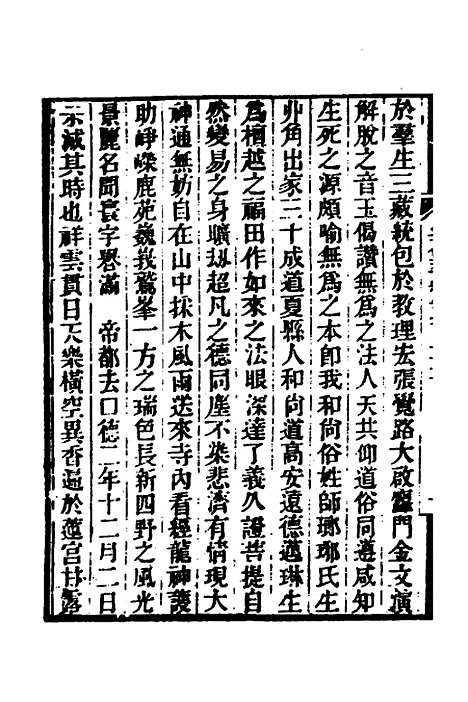 於羣生三藏統包於教理宏張覺路大啟玄門金文演
解脫之音玉偈讚無爲之法人天共仰道俗同遵咸知
生死之源頗喻無爲之本卽我和尙俗姓師瑯琊氏生
丱角出家三十成道夏縣人和尙道高安遠德邁琳生
爲檀越之福田作如來之法眼深達了義久證菩提自
然變易之身曠劫超凡之德同塵不染悲濟有情現大
神通無妨自在山中採木風雨送來寺內看經龍神護
助崢嶸鹿苑巍峩鷲峯一方之瑞色長新四野之風光
景麗名聞寰宇譽滿　帝都去□德二年十二月二日
示滅其時也祥雲貫日天樂橫空異香遍於蓮宮甘露